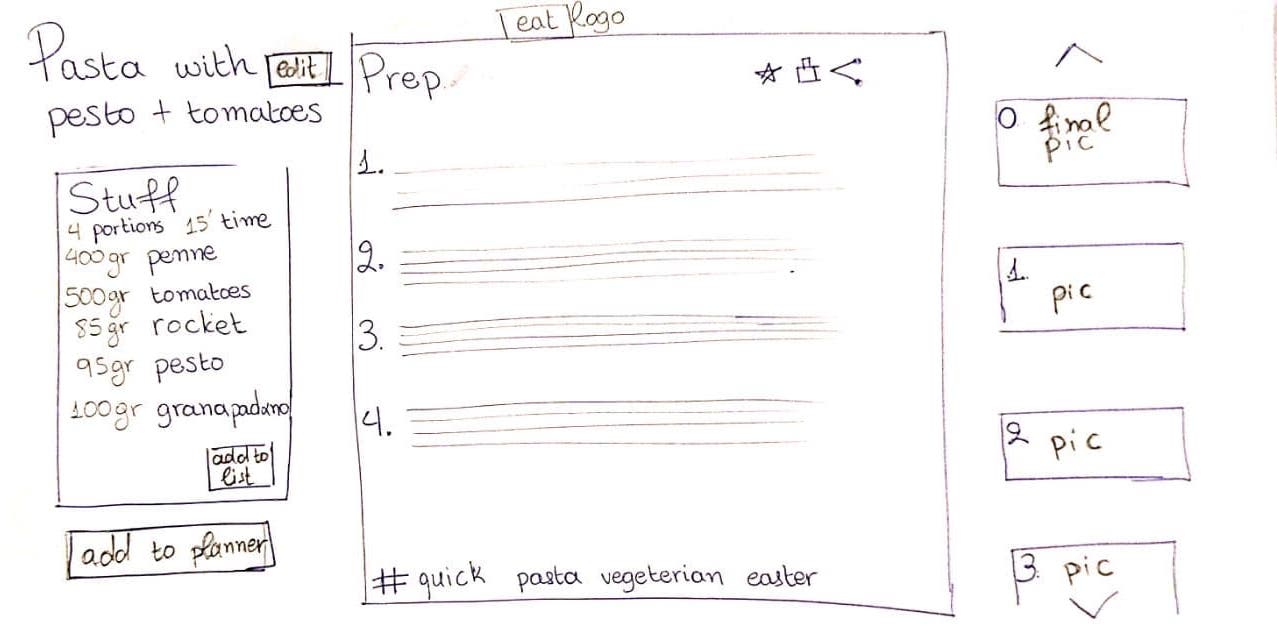 eat logo
Pasta with edit
pesto + tomatoes
Stuff
4 portions 15' time
400gr penne
500gr tomatoes
85gr rocket
95gr pesto
100gr grana padano
add to
list
add to planner
Prep.
1.
2.
3.
4.
# quick pasta vegeterian easter
0. final
pic
1.
pic
2 pic
3. pic